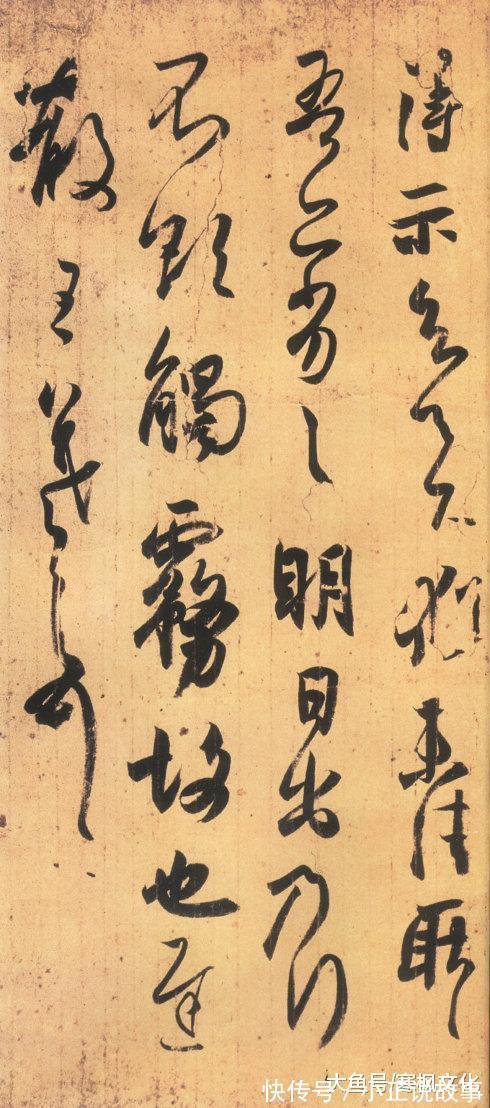 得示知足下猶未佳耿〻
吾亦劣〻明日出乃行
不欲觸霧故也遲
散王羲之頓首
大鱼号/寒枫文化
快传号/小正说故事